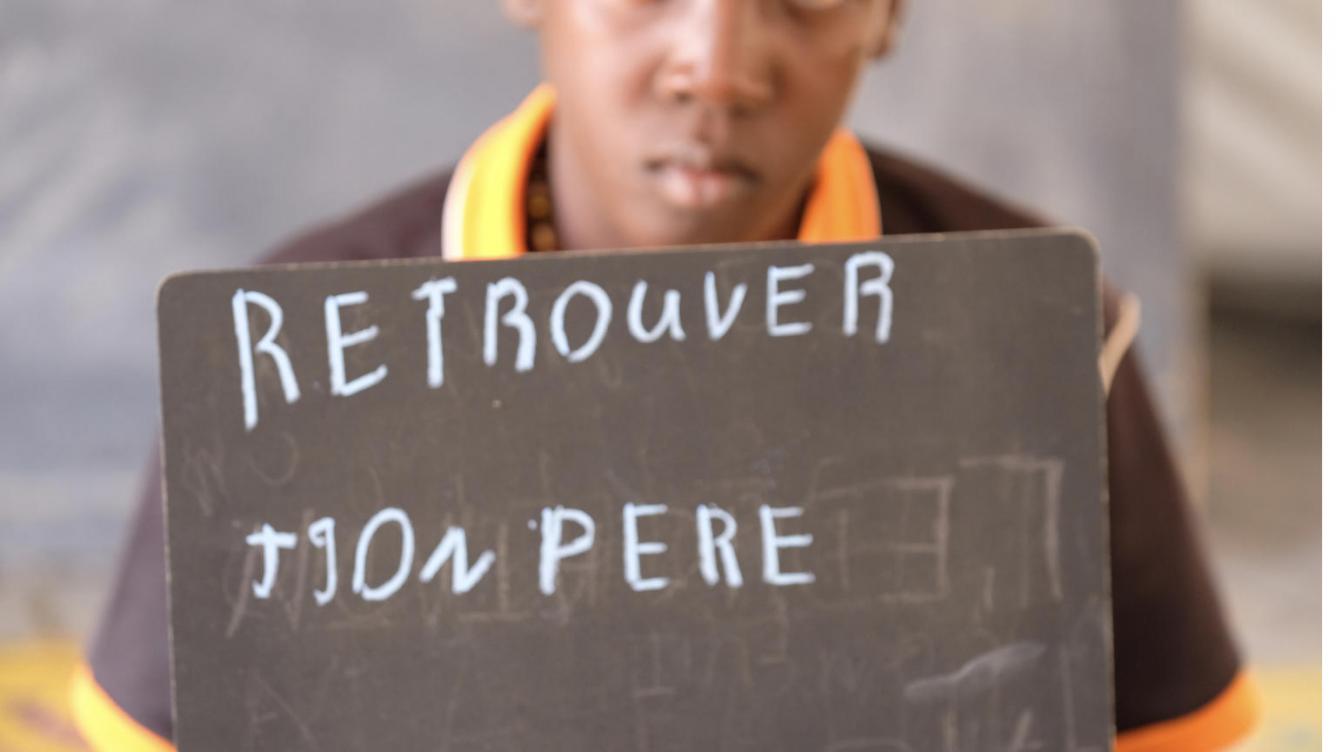 RETROUVER
TJON PERE